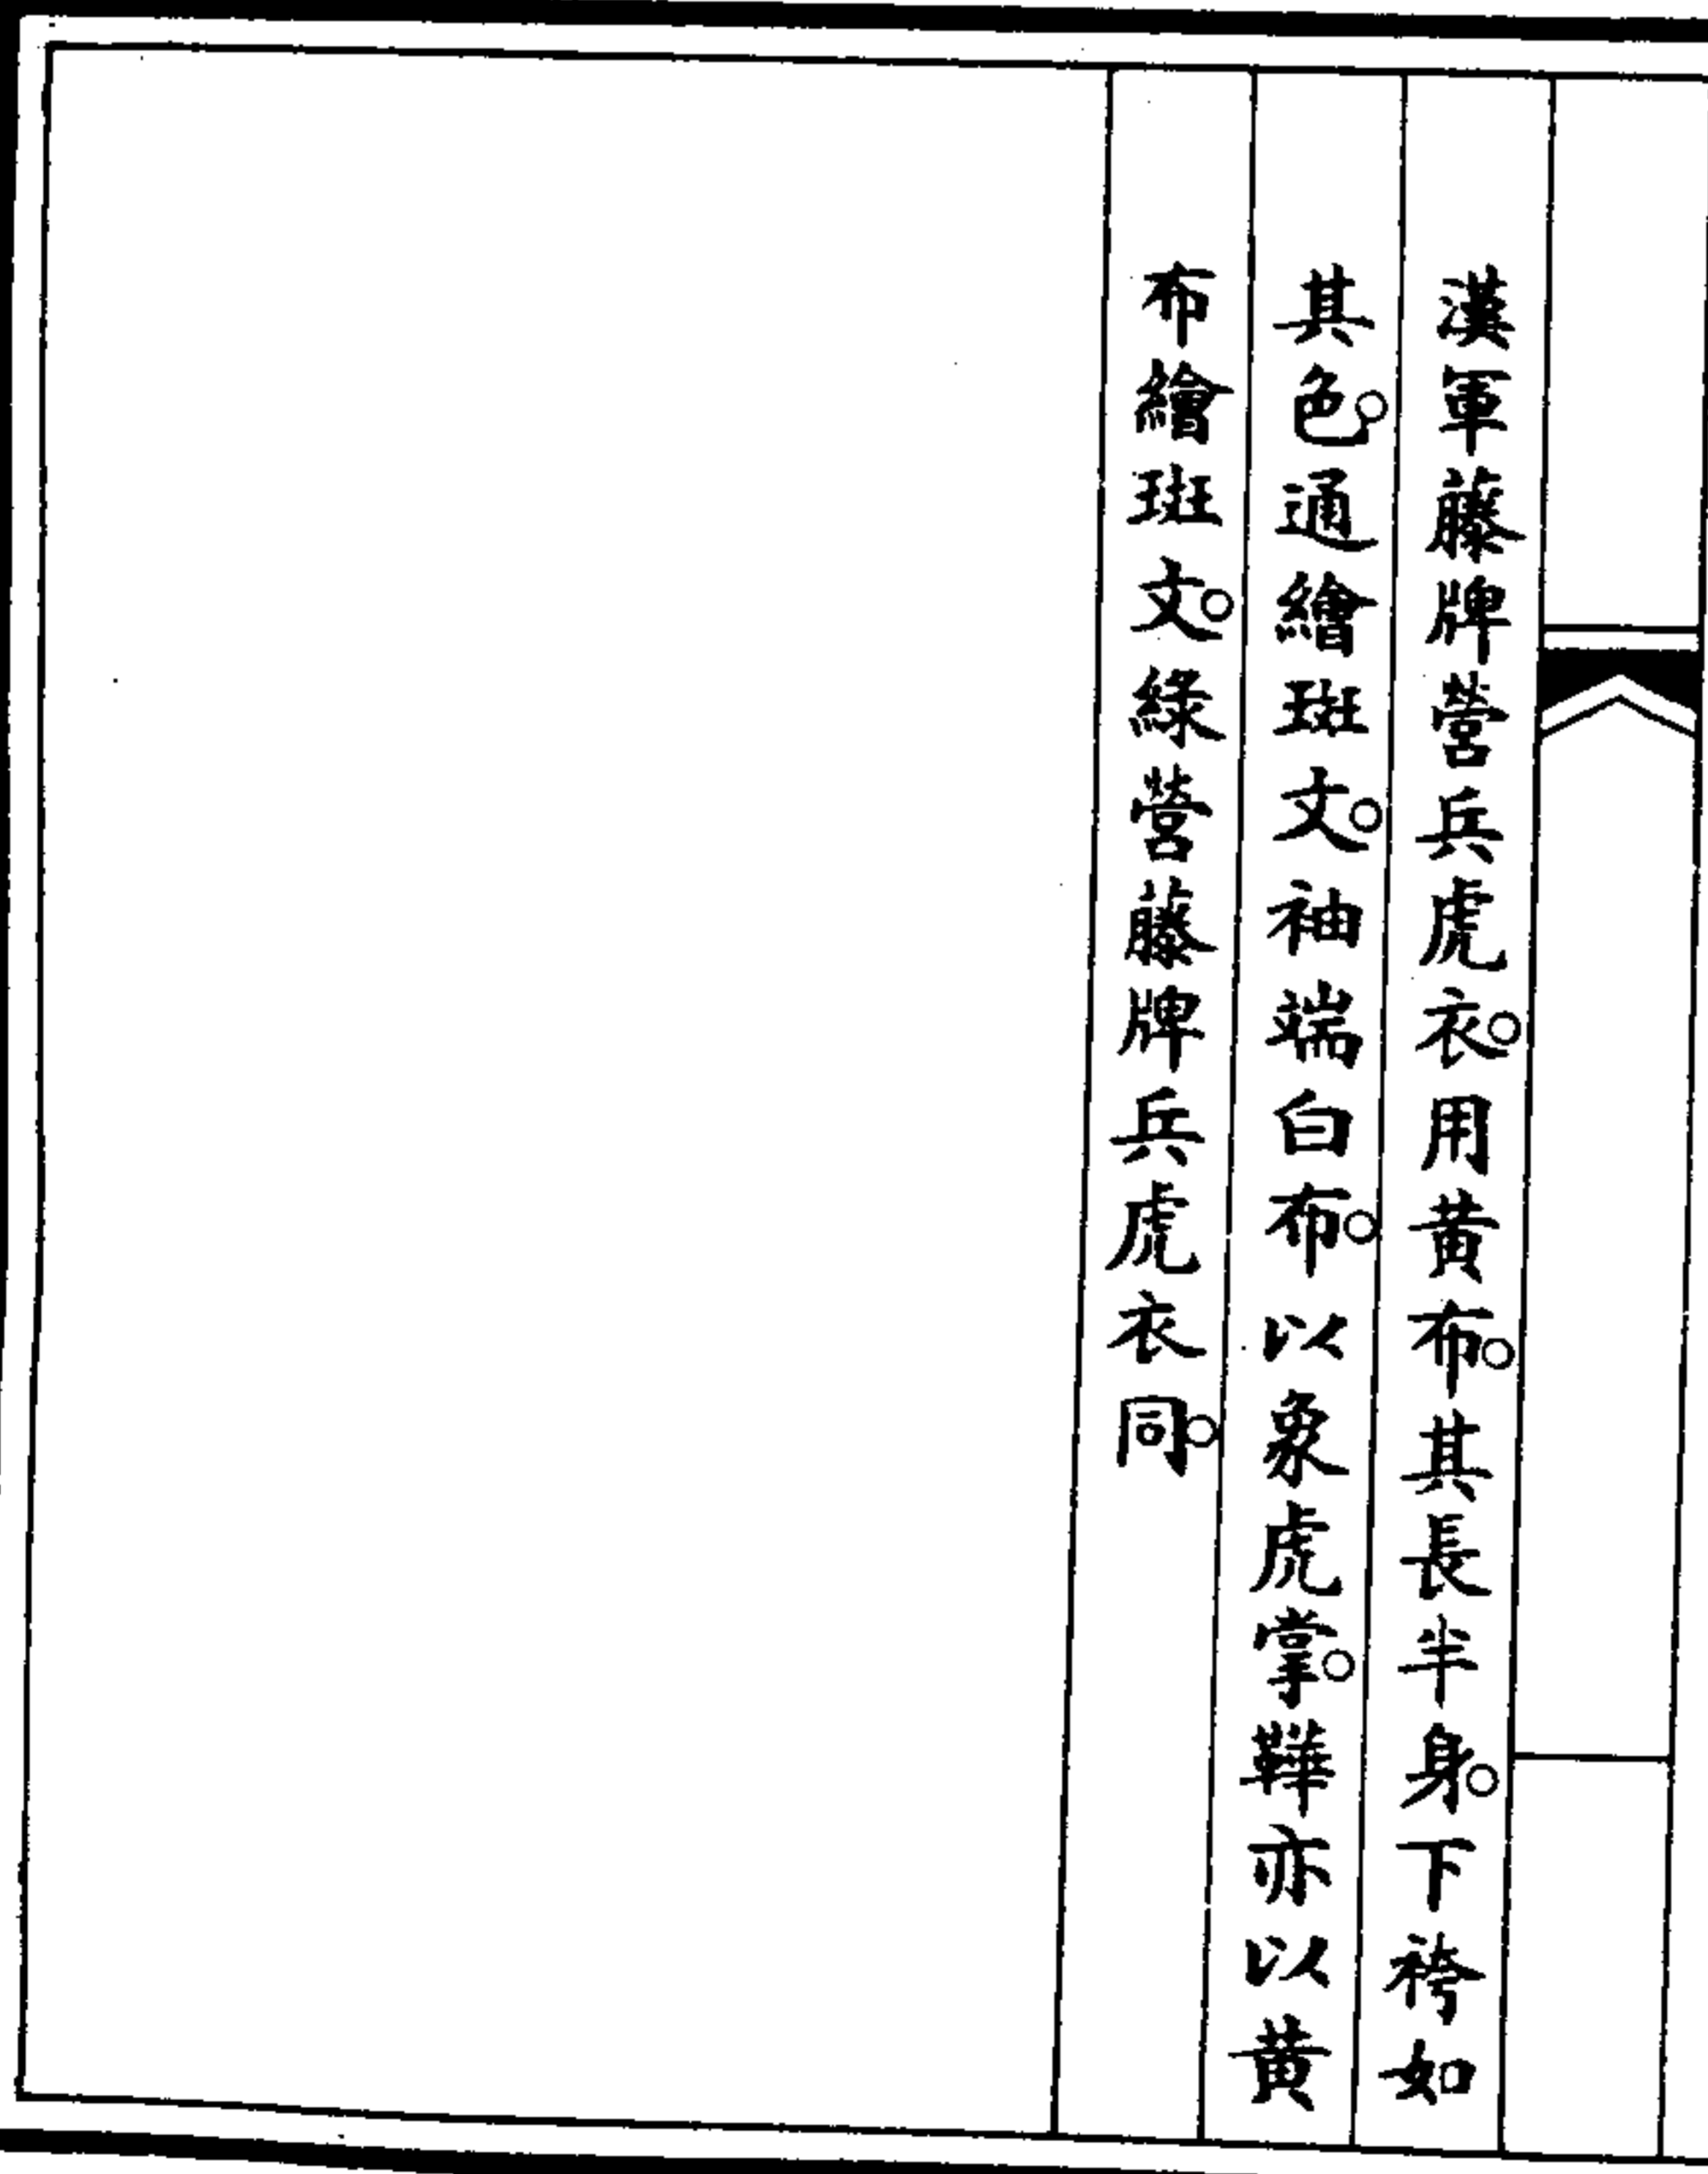 漢軍藤牌營兵虎衣。用黃布。其長半身。下袴如
其色。通繪斑文。袖端白布。以象虎掌。鞾亦以黃
布繪斑文。綠營藤牌兵虎衣同。